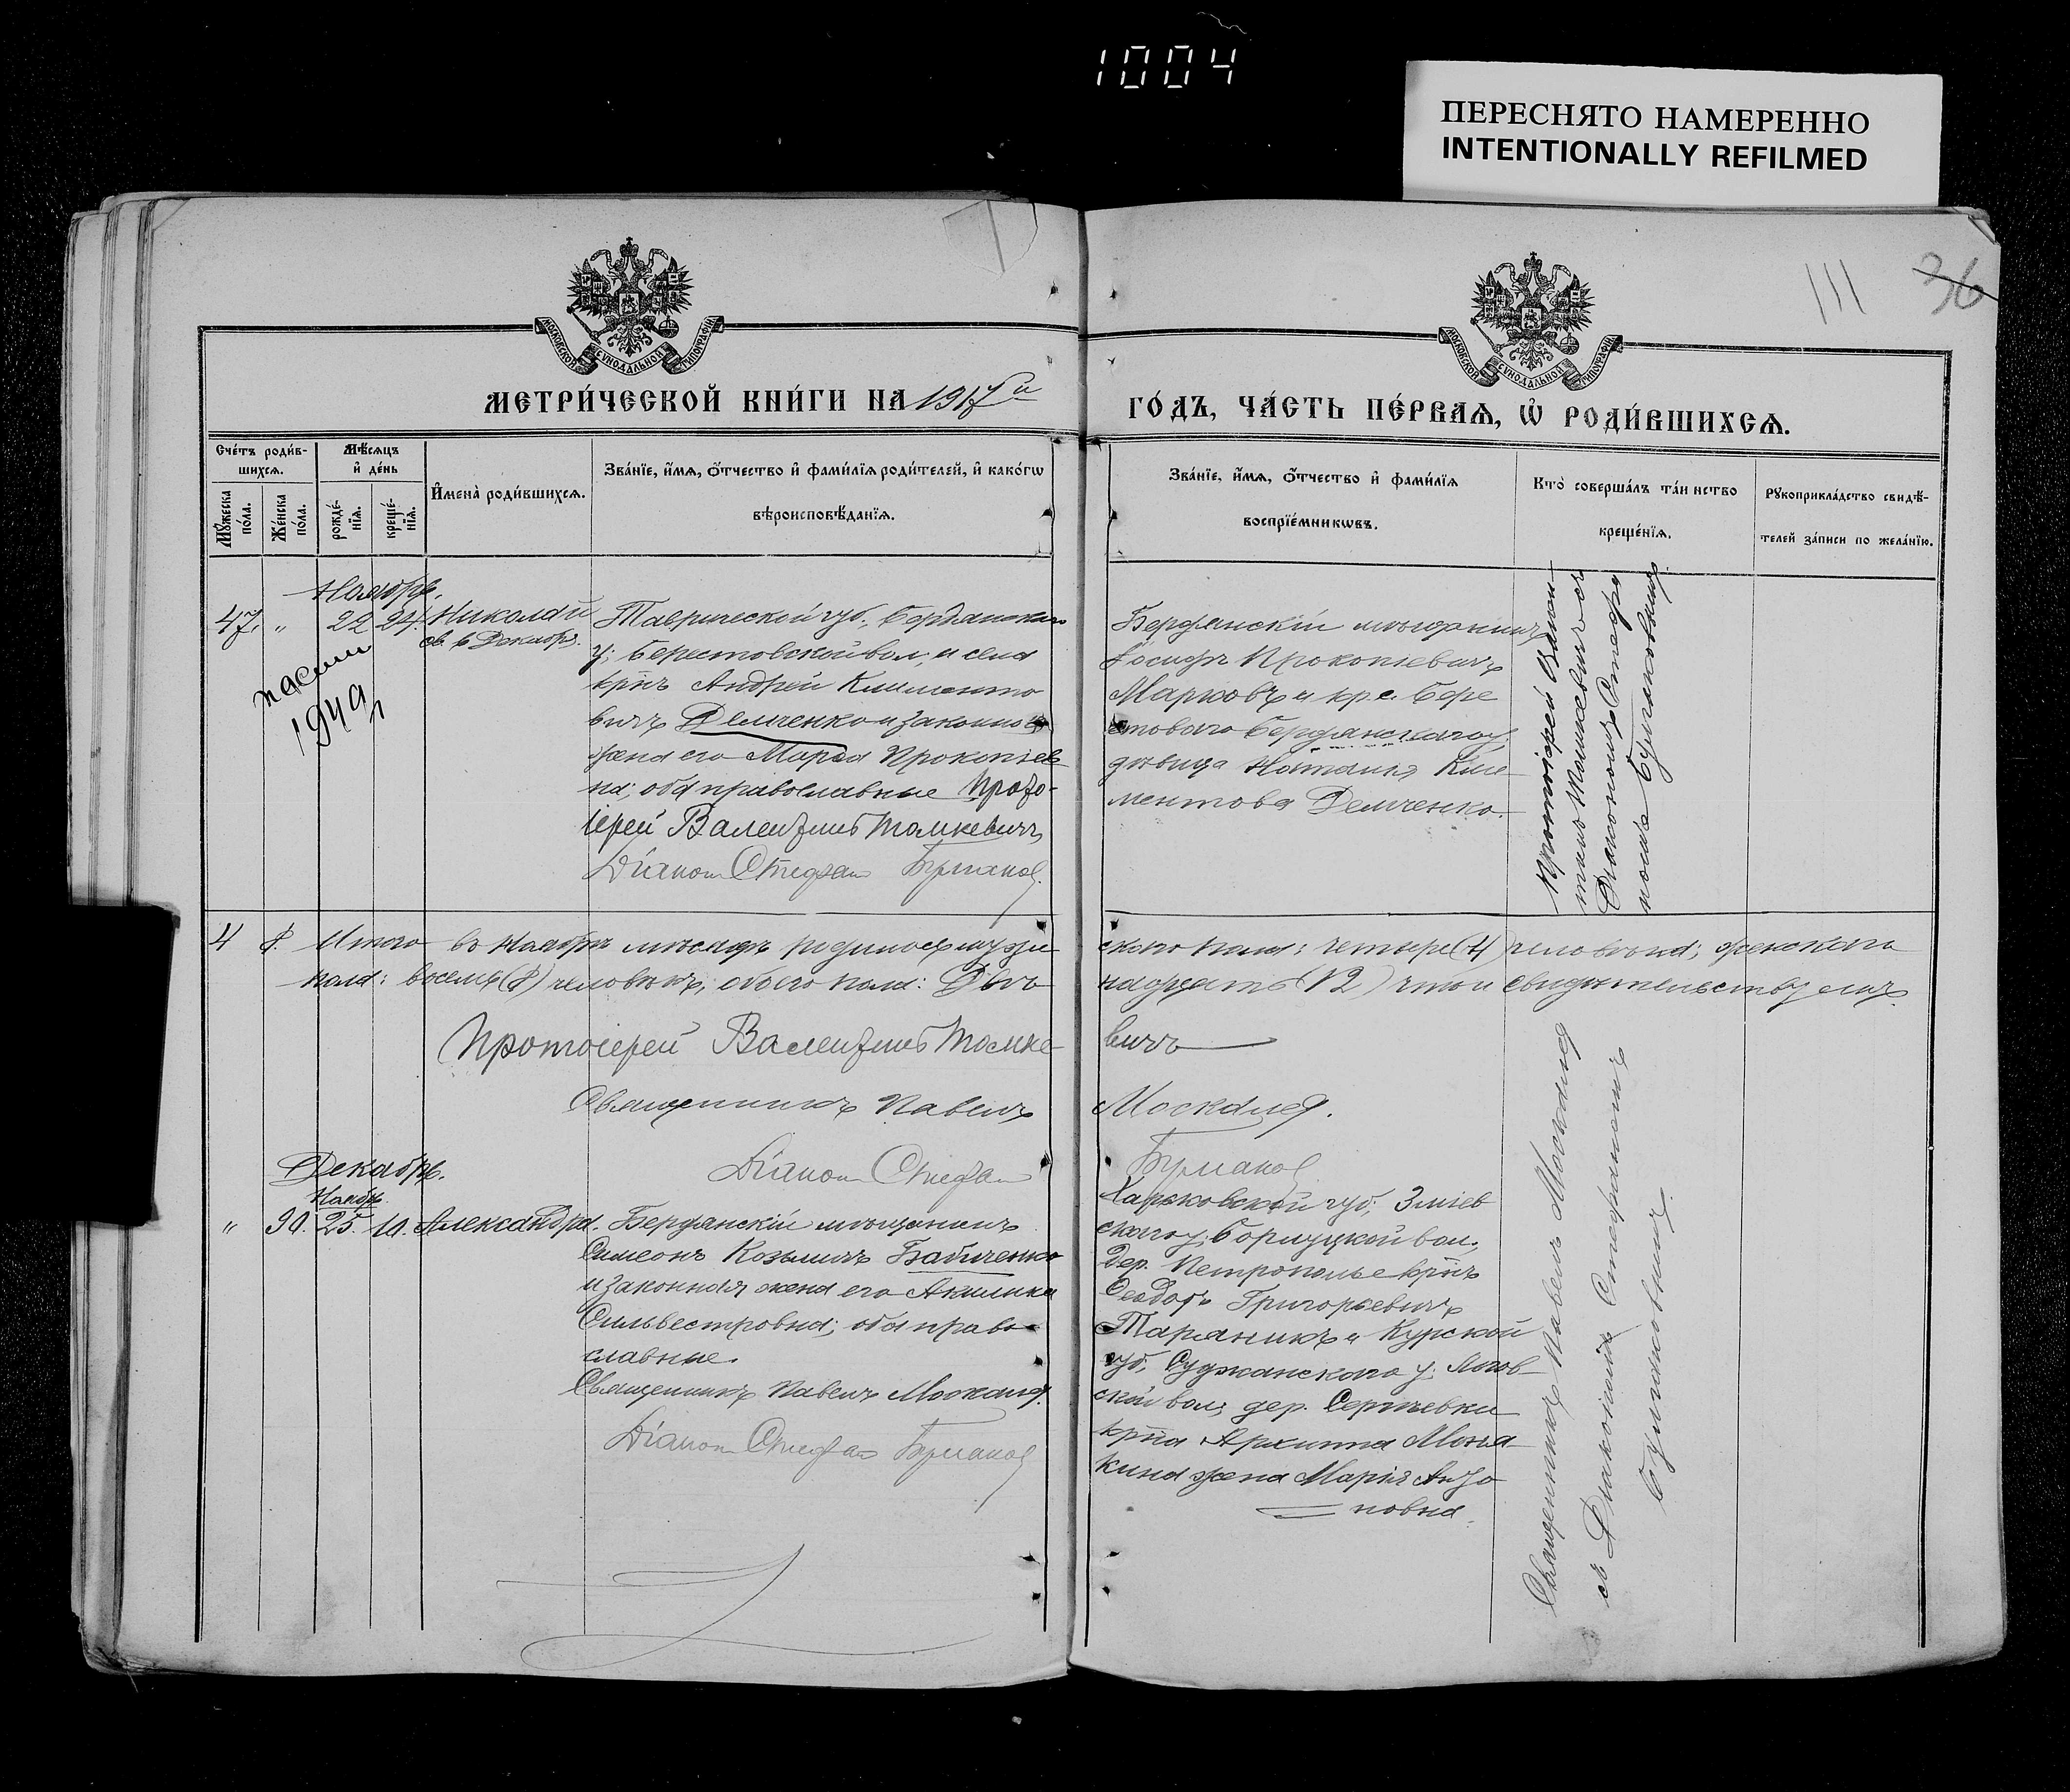 1004
ПЕРЕСНЯТО НАМЕРЕННО
INTENTIONALLY REFILMED
111
36
МОСКОВСКОЙ СѴНОДАЛЬНОЙ ТИПОГРАФІИ
МОСКОВСКОЙ СѴНОДАЛЬНОЙ ТИПОГРАФІИ
МЕТРИ́ЧЕСКОЙ КНИ́ГИ НА 1917й
ГО́ДЪ, ЧА́СТЬ ПЕ́РВАѦ, Ѽ РОДИ́ВШИХСѦ.
Сче́тъ роди́в-
шихсѧ.
Мꙋ́жеска
по́ла.
Же́нска
по́ла.
Мѣ́сѧцъ
и҆ де́нь
рожде́-
нїѧ.
креще́-
нїѧ.
И҆мена̀ роди́вшихсѧ.
Зва́нїе, и҆́мѧ, ѻ҆́тчество и҆ фами́лїѧ роди́телей, и҆ како́гѡ
вѣроисповѣ́данїѧ.
Зва́нїе, и҆́мѧ, ѻ҆́тчество и҆ фами́лїѧ
воспрїе́мникѡвъ.
Кто̀ соверша́лъ та́инство
креще́нїѧ.
Рꙋкоприкла́дство свидѣ́-
телей за́писи по жела́нїю.
Ноябрь.
47. " 22 24. Николай
св. 6 Декабр.
1949
Таврической губ., Бердянскаго
у; Берестовской вол, и села
крнъ Андрей Климento
вичъ Демченко и законная
жена его Марфа Прокопіев
на; оба православные Прото-
іерей Валентинъ Томкевичъ
Діакон Стефан Булгаков
Бердянскій мѣщанинъ
Іосифъ Прокопіевичъ
Марковъ и кр. с. Бере
стового Бердянскаго у,
дѣвица Наталия Кли
ментова Демченко.
Протоіерей Вален-
тинъ Томкевичъ съ
Діакономъ Стефа
номъ Булгаковымъ
4 8. Итого въ Ноябрѣ мѣсяцѣ родилось муже
скаго пола: четыре (4) человѣка; женскаго
пола: восемь (8) человѣкъ; обоего пола: Двѣ
надцать (12) что и свидѣтельствуемъ.
Протоіерей Валентинъ Томке
вичъ
Священникъ Павелъ
Діакон Стефан
Булгаков
Декабрь.
Ноябр.
" 30. 25. 10. Александра.
Бердянскій мѣщанинъ
Симеонъ Козьмичъ Бабиченко
и законная жена его Акилина
Сильвестровна; оба право
славные.
Священникъ Павелъ
Діакон Стефан Булгаков
Харьковской губ, Зміев
скаго у,
дер. Петрополье крнъ
Ѳеодоръ Григорьевичъ
Тараникъ и Курской
губ, Суджанскаго у.
ской вол, дер. Сергѣевки
крна Архиппа
кина жена Марія Анто
новна.
Священникъ Павелъ
съ Діакономъ Стефаномъ
Булгаковымъ.